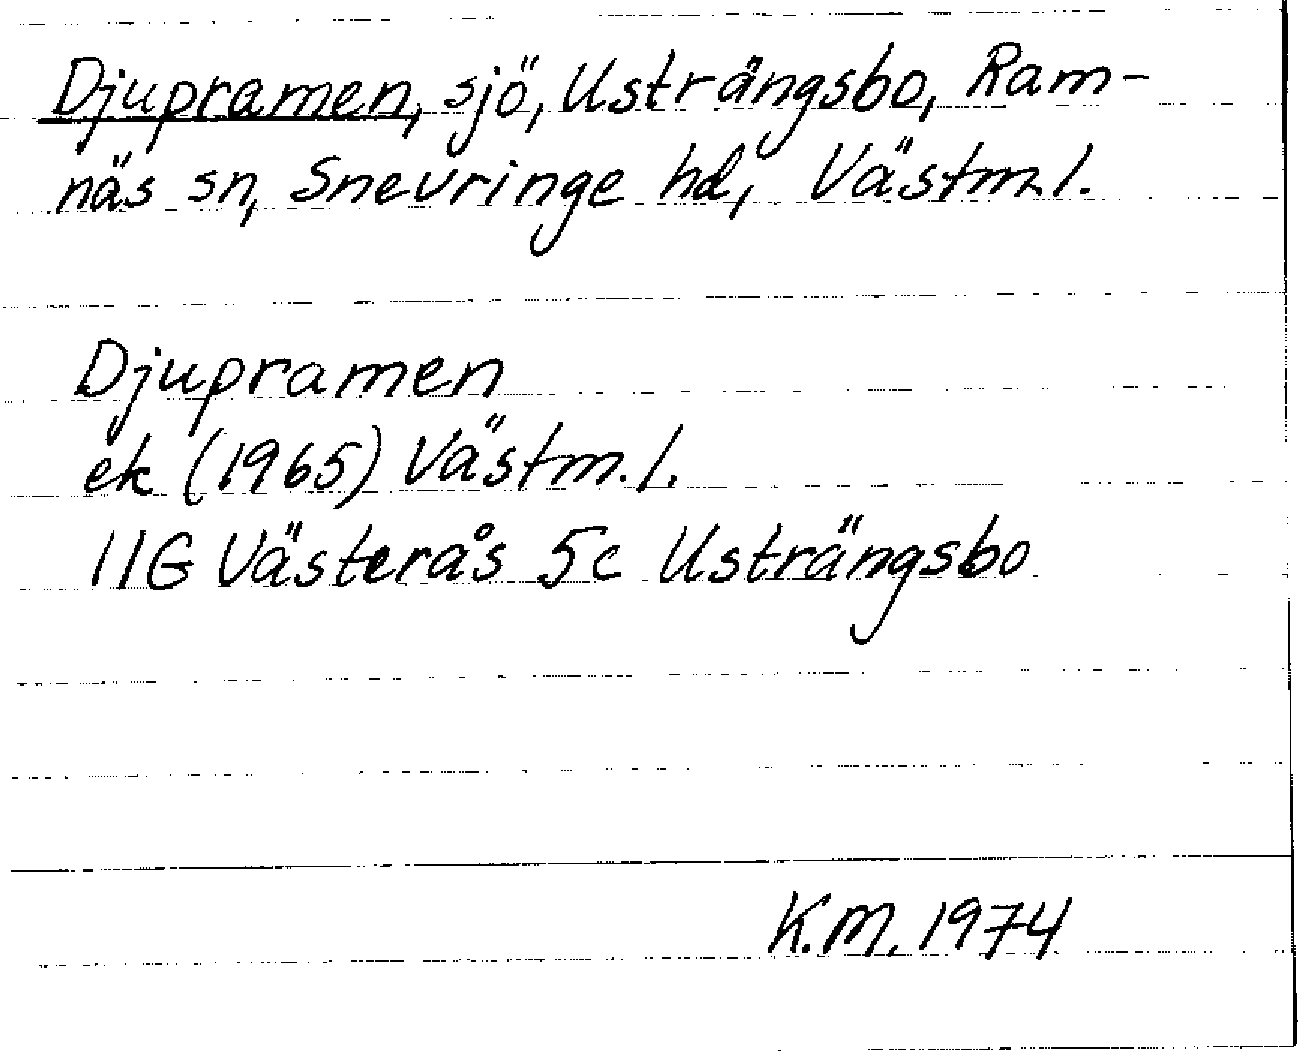 Djupramen, sjö, Usträngsbo, Ram-
näs sn, Snevringe hd, Västm.l.
Djupramen
ek (1965) Västm.l.
11G Västerås 5c Usträngsbo
K.M. 1974